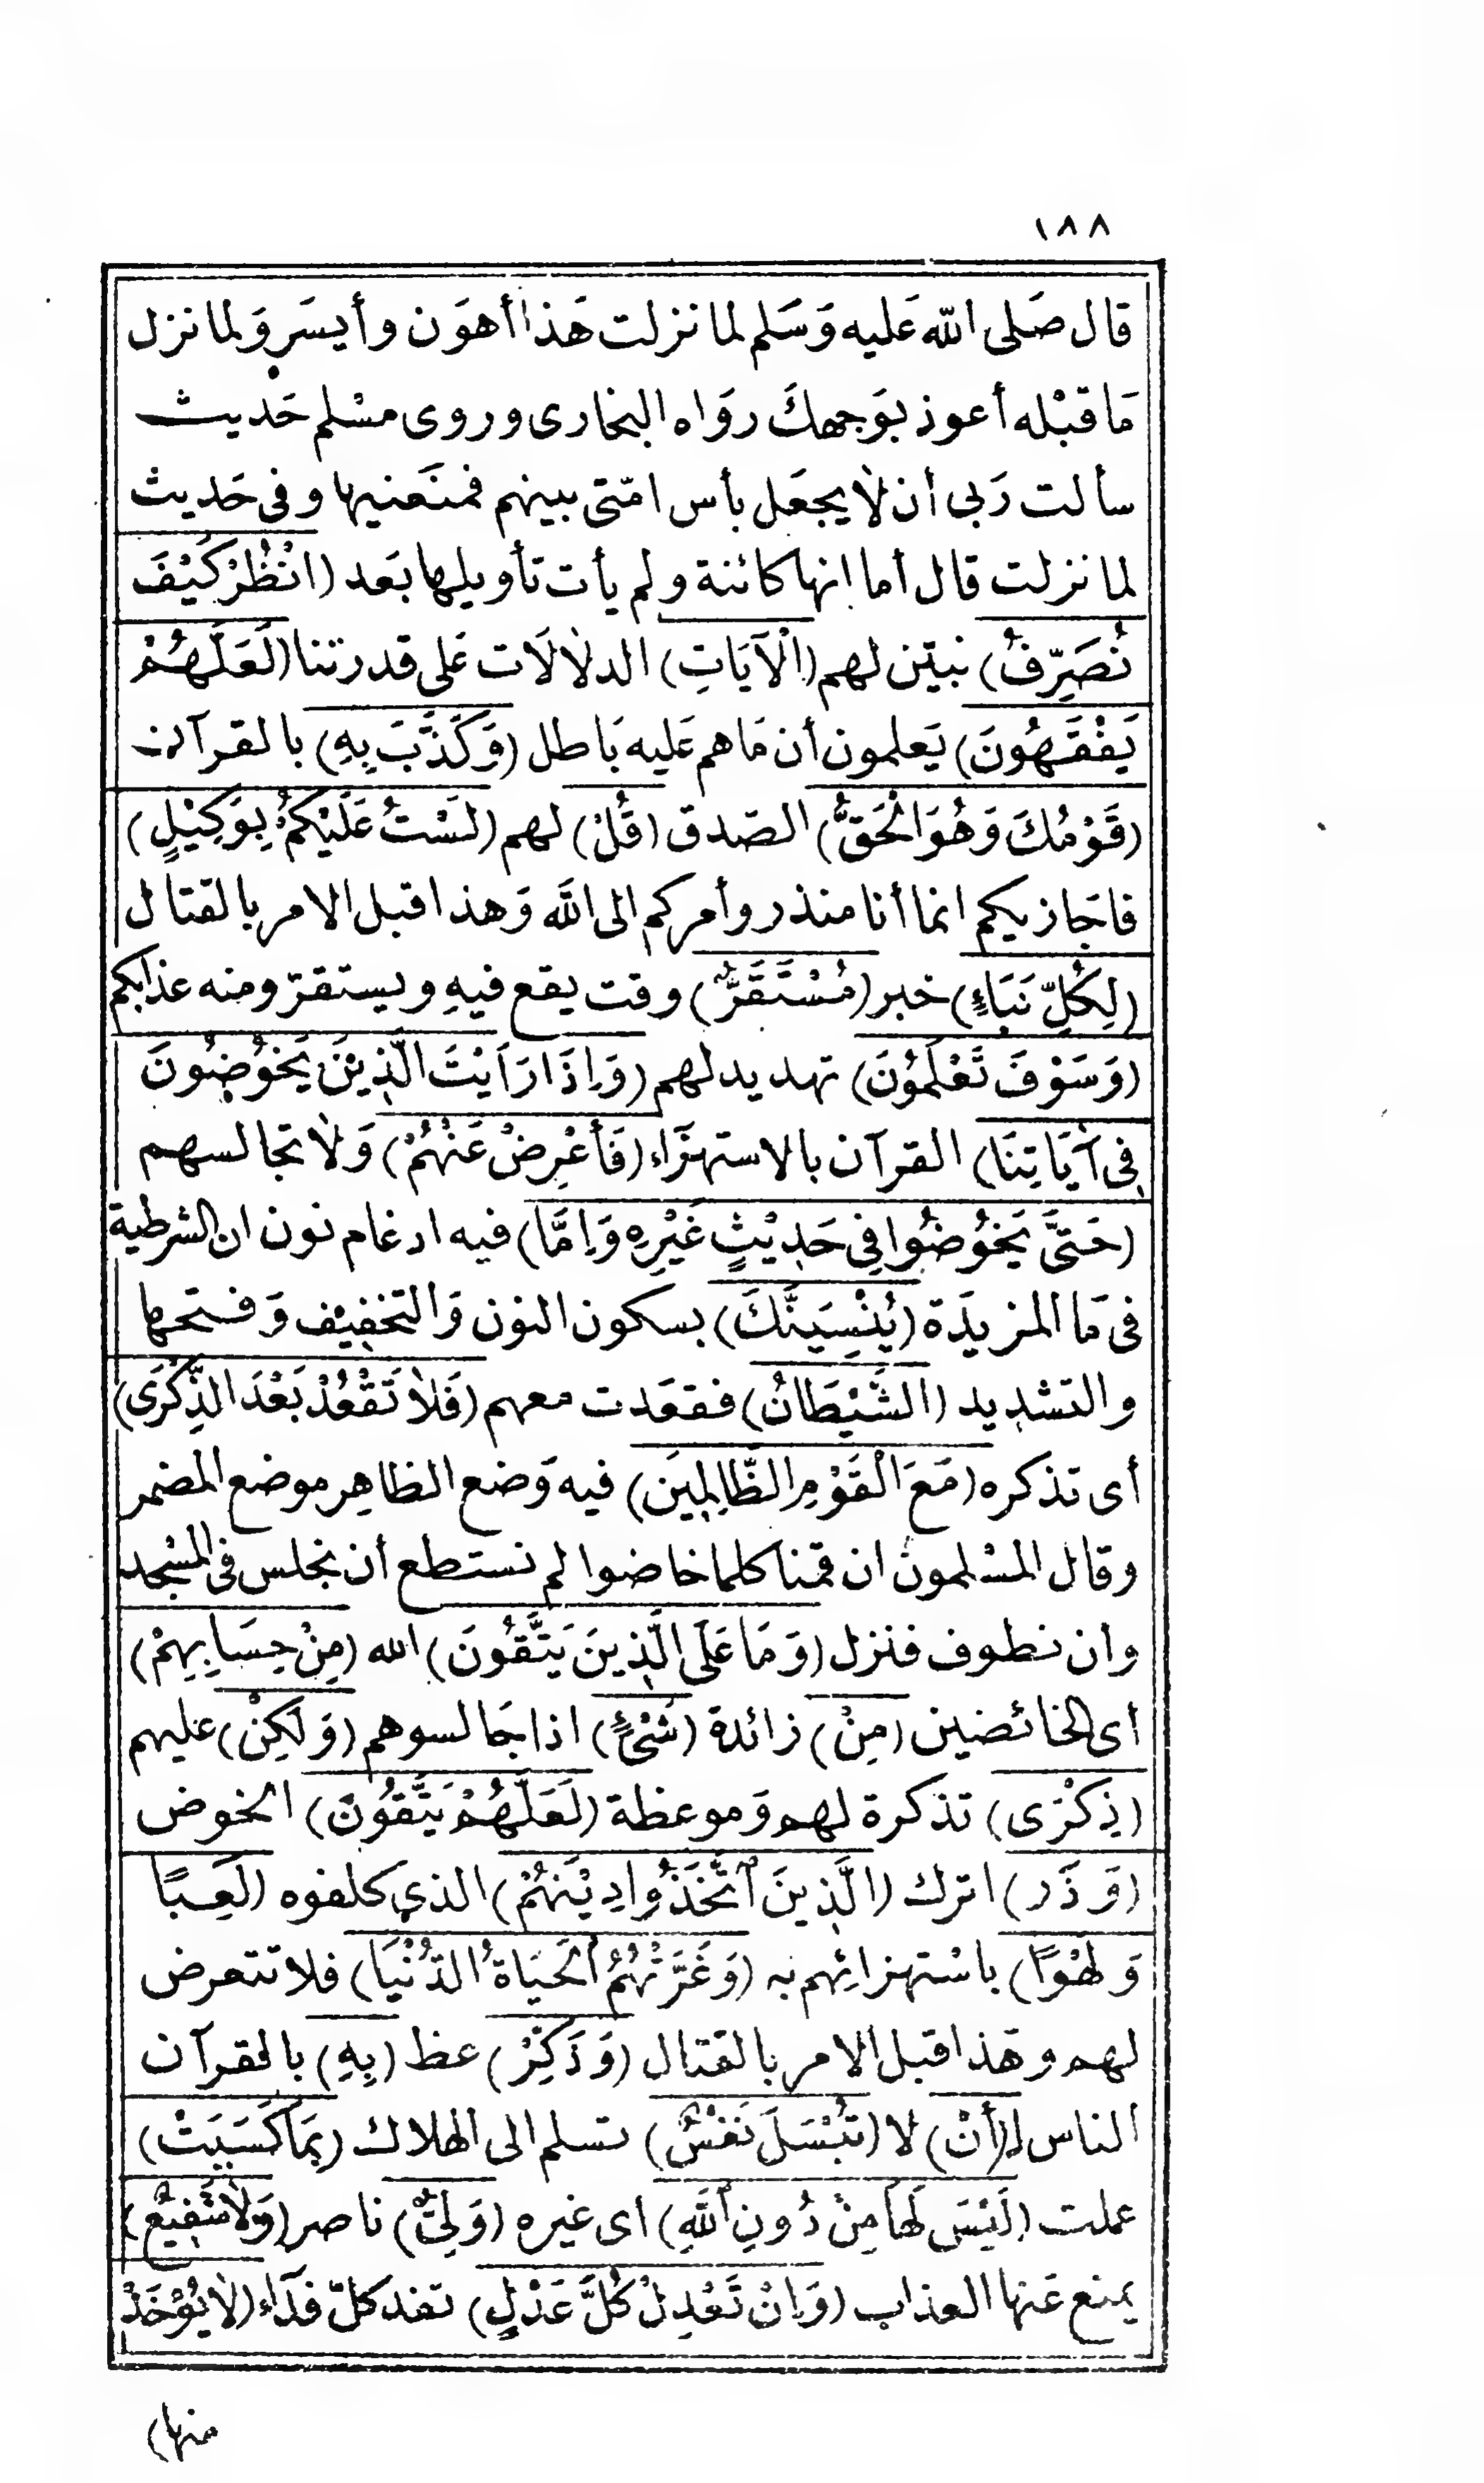 ١٨٨
قال صَلى الله عَليه وَسَلم لما نزلت هَذا أهوَن وأيسَر وَلما نزل
مَا قبْله أعوذ بوَجهكَ روَاه البخارى وروى مسْلم حَديث
سألت رَبى أن لا يجعَل بأس امّتى بينهم فمنَعنيها وفى حَديث
لما نزلت قال أما انها كائنة ولم يأت تأويلها بَعد (انْظُرْ كَيْفَ
نُصَرِّفُ) نبيّن لهم (الْآيَاتِ) الدلالَات عَلى قدرتنا (لَعَلَّهُمْ
يَفْقَهُونَ) يَعلمون أن مَا هم عَليه بَاطل (وَكَذَّبَ بِهِ) بالقرآن
(قَوْمُكَ وَهُوَ الْحَقُّ) الصّدق (قُلْ) لهم (لَسْتُ عَلَيْكُمْ بِوَكِيْلٍ)
فاجَازيكم انما أنا منذر وأمركم الى الله وَهذا قبل الامر بالقتال
(لِكُلِّ نَبَاءٍ) خبر (مُسْتَقَرٌّ) وقت يقع فيهِ ويستقرّ ومنه عذابكم
(وَسَوْفَ تَعْلَمُوْنَ) تهديد لهم (وَاِذَا رَاَيْتَ الَّذِيْنَ يَخُوْضُونَ
فِى آيَاتِنَا) القرآن بالاستهزَاء (فَأَعْرِضْ عَنْهُمْ) وَلا تجالسهم
(حَتَّى يَخُوْضُوا فِى حَدِيْثٍ غَيْرِهِ وَاِمَّا) فيه ادغام نون ان الشرطية
فى مَا المزيدَة (يُنْسِيَنَّكَ) بسكون النون وَالتخفيف وَفتحها
والتشديد (الشَّيْطَانُ) فقعَدت معهم (فَلَا تَقْعُدْ بَعْدَ الذِّكْرَى)
أى تذكره (مَعَ الْقَوْمِ الظَّالِمِيَن) فيه وَضع الظاهِر موضع المضمر
وقال المسْلمون ان قمنا كلما خاضوا لم نستطع أن نجلس فى المسْجد
وان نطوف فنزل (وَمَا عَلَى الَّذِينَ يَتَّقُونَ) الله (مِنْ حِسَابِهِمْ)
اى الخائضين (مِنْ) زائدة (شَىْءٍ) اذا جَالسوهم (وَلَكِنْ) عليهم
(ذِكْرَى) تذكرة لهم وَموعظة (لَعَلَّهُمْ يَتَّقُونَ) الخوض
(وَذَر) اترك (الَّذِينَ اتَّخَذُوا دِيْنَهُمْ) الذي كلفوه (لَعِبًا
وَلَهْوًا) باسْتهزائِهم به (وَغَرَّتْهُمُ الْحَيَاةُ الدُّنْيَا) فلا تتعرض
لهم وهَذا قبل الامر بالقتال (وَذَكِّرْ) عظ (بِهِ) بالقرآن
الناس لـ(أَنْ) لا (تُبْسَلَ نَفْسٌ) تسلم الى الهلاك (بِمَا كَسَبَتْ)
عملت (لَيْسَ لَهَا مِنْ دُونِ اللَّهِ) اى غيره (وَلِىٌّ) ناصر (وَلَا شَفِيْعٌ)
يمنع عَنها العذاب (وَاِنْ تَعْدِلْ كُلَّ عَدْلٍ) تفد كلّ فدَاء (لَا يُوْخَذْ
منها)